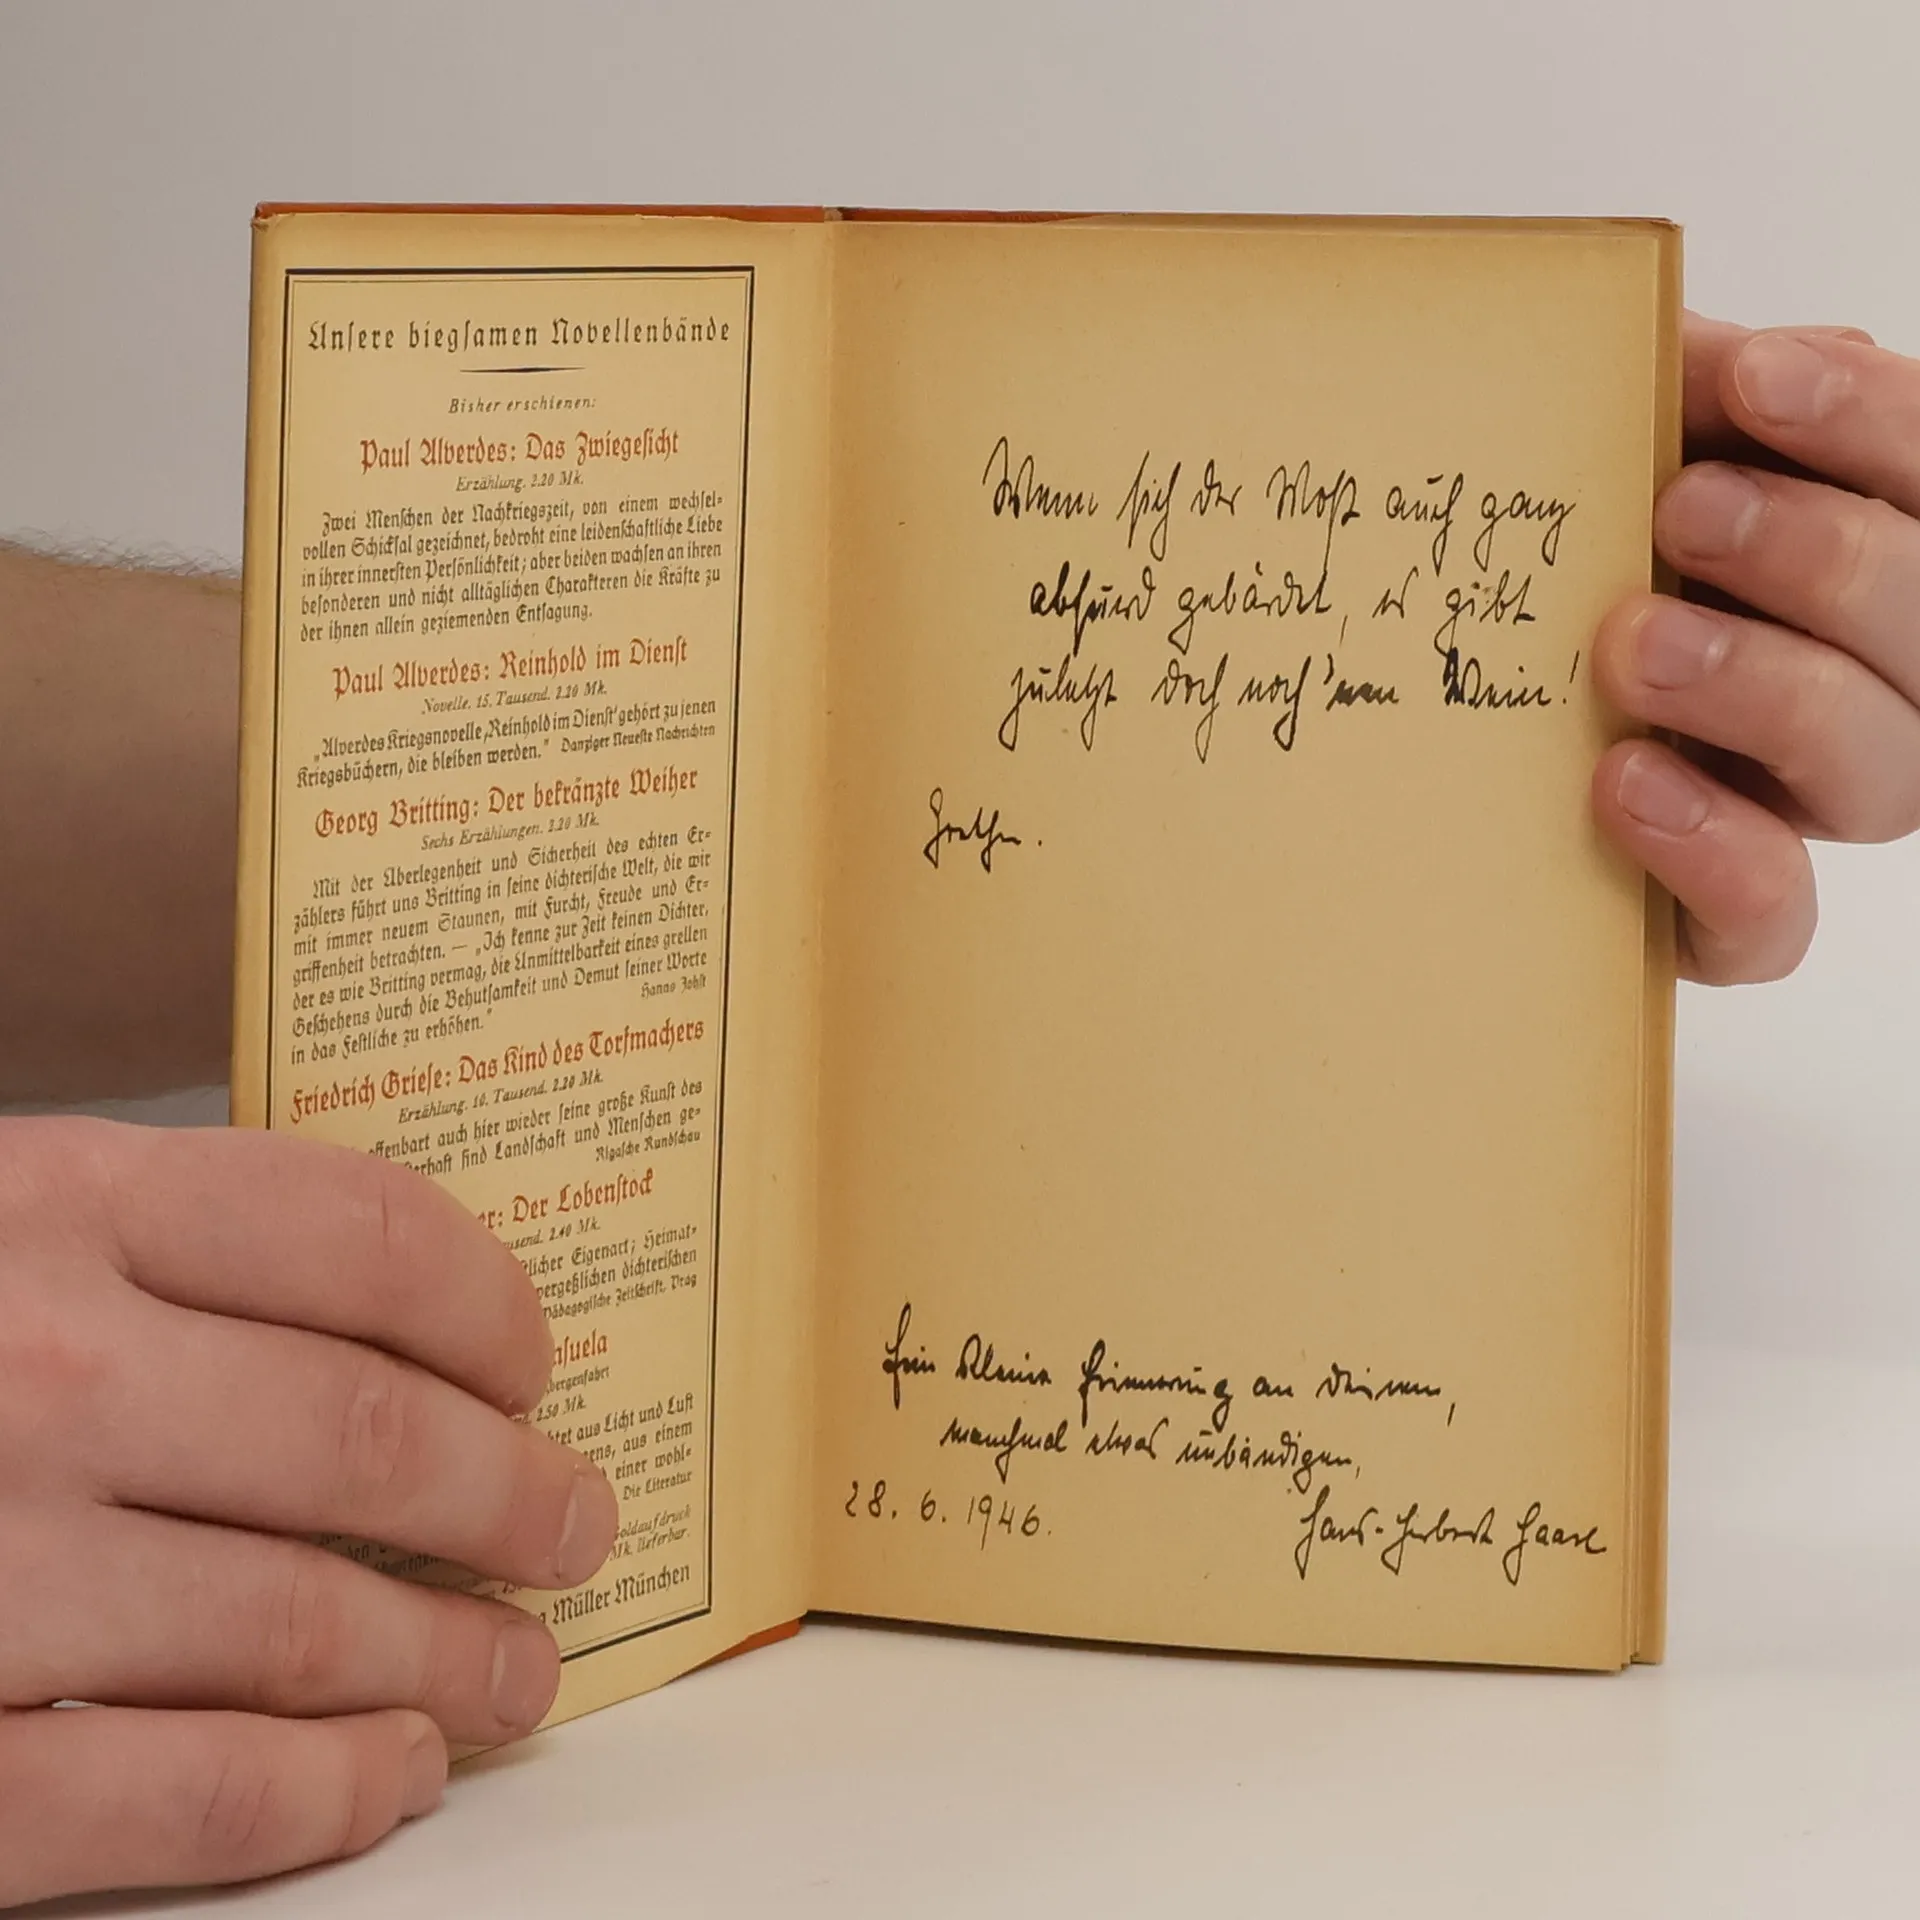 Unsere biegsamen Novellenbände
Bisher erschienen:
Paul Alverdes: Das Zwiegesicht
Erzählung. 2.20 Mk.
Zwei Menschen der Nachkriegszeit, von einem wechsel-
vollen Schicksal gezeichnet, bedroht eine leidenschaftliche Liebe
in ihrer innersten Persönlichkeit; aber beiden wachsen an ihren
besonderen und nicht alltäglichen Charakteren die Kräfte zu
der ihnen allein geziemenden Entsagung.
Paul Alverdes: Reinhold im Dienst
Novelle. 15. Tausend. 2.20 Mk.
„Alverdes Kriegsnovelle ‚Reinhold im Dienst‘ gehört zu jenen
Kriegsbüchern, die bleiben werden.“ Danziger Neueste Nachrichten
Georg Britting: Der bekränzte Weiher
Sechs Erzählungen. 2.20 Mk.
Mit der Überlegenheit und Sicherheit des echten Er-
zählers führt uns Britting in seine dichterische Welt, die wir
mit immer neuem Staunen, mit Furcht, Freude und Er-
griffenheit betrachten. — „Ich kenne zur Zeit keinen Dichter,
der es wie Britting vermag, die Unmittelbarkeit eines grellen
Geschehens durch die Behutsamkeit und Demut seiner Worte
in das Festliche zu erhöhen.“
Hanns Johst
Friedrich Griese: Das Kind des Torfmachers
Erzählung. 10. Tausend. 2.20 Mk.
offenbart auch hier wieder seine große Kunst des
erhaft sind Landschaft und Menschen ge-
Rigasche Rundschau
er: Der Lobenstock
usend. 2.40 Mk.
tlicher Eigenart; Heimat-
vergeßlichen dichterischen
Pädagogische Zeitschrift, Prag
nsuela
bergenfahrt
nd. 2.50 Mk.
htet aus Licht und Luft
ens, aus einem
einer wohl-
Die Literatur
Goldaufdruck
Mk. lieferbar.
Müller München
Wenn sich der Most auch ganz
absurd gebärdet, es gibt
zuletzt doch noch 'nen Wein!
Goethe.
Eine kleine Erinnerung an Deinen,
manchmal etwas unbändigen,
28. 6. 1946.
Hans-Herbert Haase